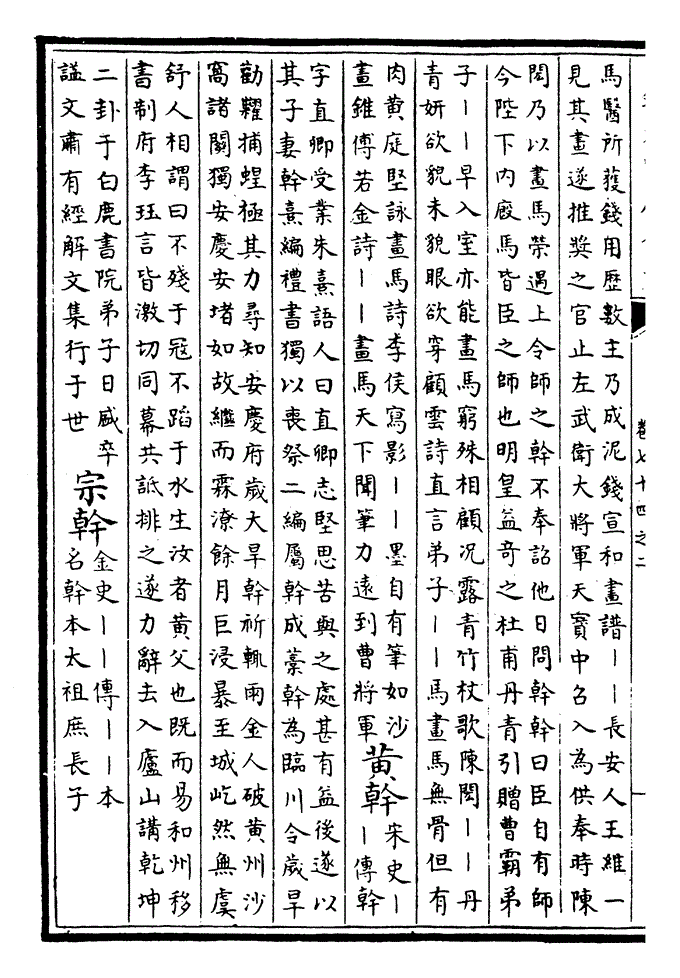 馬醫所獲錢用歷數主乃成泥錢宣和畫譜丨丨長安人王維一
見其畫遂推獎之官止左武衛大將軍天寶中召入為供奉時陳
閎乃以畫馬榮遇上令師之幹不奉詔他日問幹幹曰臣自有師
今陛下内廄馬皆臣之師也明皇益奇之杜甫丹青引贈曹霸弟
子丨丨早入室亦能畫馬窮殊相顧况露青竹杖歌陳閎丨丨丹
青妍欲貌未貌眼欲穿顧雲詩直言弟子丨丨馬畫馬無骨但有
肉黄庭堅詠畫馬詩李侯寫影丨丨墨自有筆如沙
畫錐傅若金詩丨丨畫馬天下聞筆力遠到曹將軍
黄幹
宋史丨
丨傳幹
字直卿受業朱熹語人曰直卿志堅思苦與之處甚有益後遂以
其子妻幹熹編禮書獨以喪祭二編屬幹成藁幹為臨川令歲旱
勸糶捕蝗極其力尋知安慶府歲大旱幹祈輒雨金人破黄州沙
窩諸關獨安慶安堵如故繼而霖潦餘月巨浸暴至城屹然無虞
舒人相謂曰不殘于寇不蹈于水生汝者黄父也既而易和州移
書制府李珏言皆激切同幕共詆排之遂力辭去入廬山講乾坤
二卦于白鹿書院弟子日盛卒
諡文肅有經解文集行于世
宗幹
金史丨丨傳丨丨本
名幹本太祖庶長子
卷七十四之二